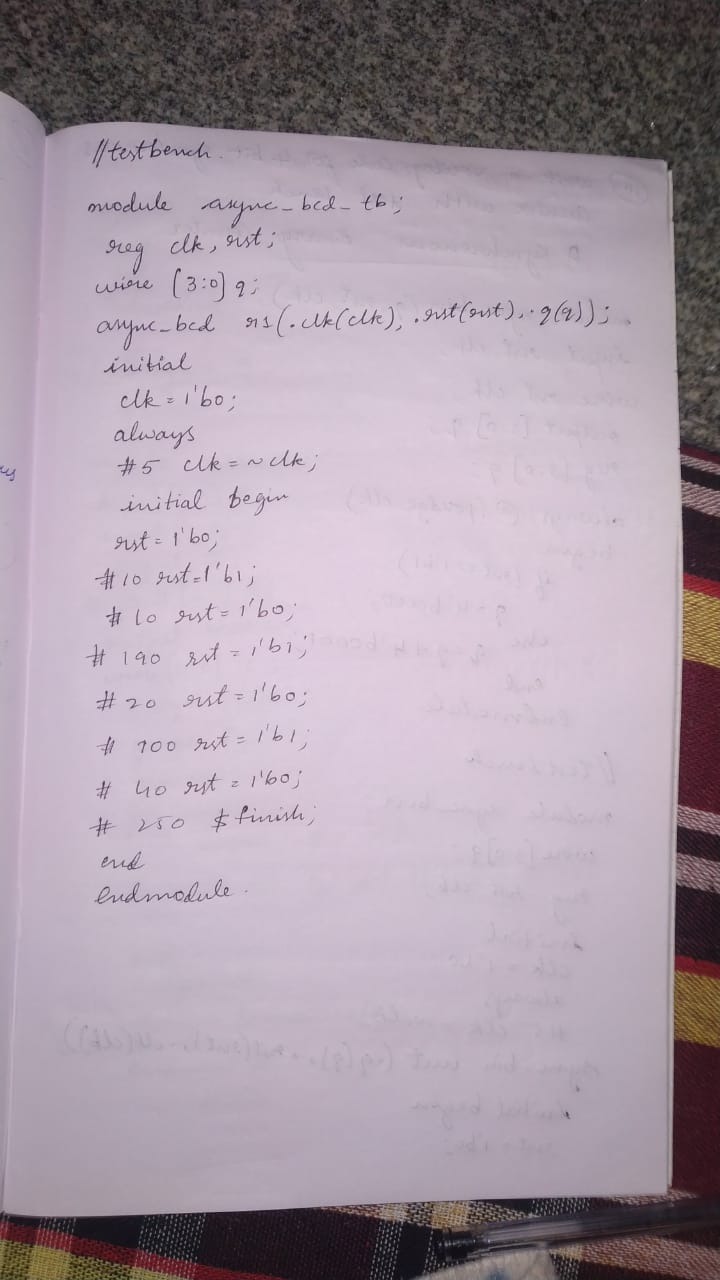 //testbench.
module async_bcd_tb;
reg clk, rst;
wire [3:0] q;
async_bcd rs(.clk(clk), .rst(rst), .q(q));
initial
clk = 1'b0;
always
#5 clk = ~clk;
initial begin
rst = 1'b0;
#10 rst=1'b1;
#10 rst = 1'b0;
#190 rst = 1'b1;
#20 rst = 1'b0;
#100 rst = 1'b1;
#40 rst = 1'b0;
#250 $finish;
end
endmodule.